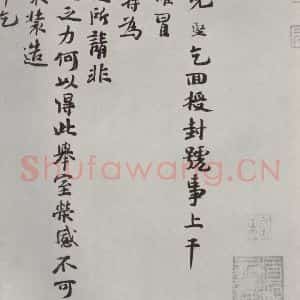 乞面授封號事上干
冒
為
所請非
之力何以得此舉室榮感不可
裝造
乞
Shufawang.CN